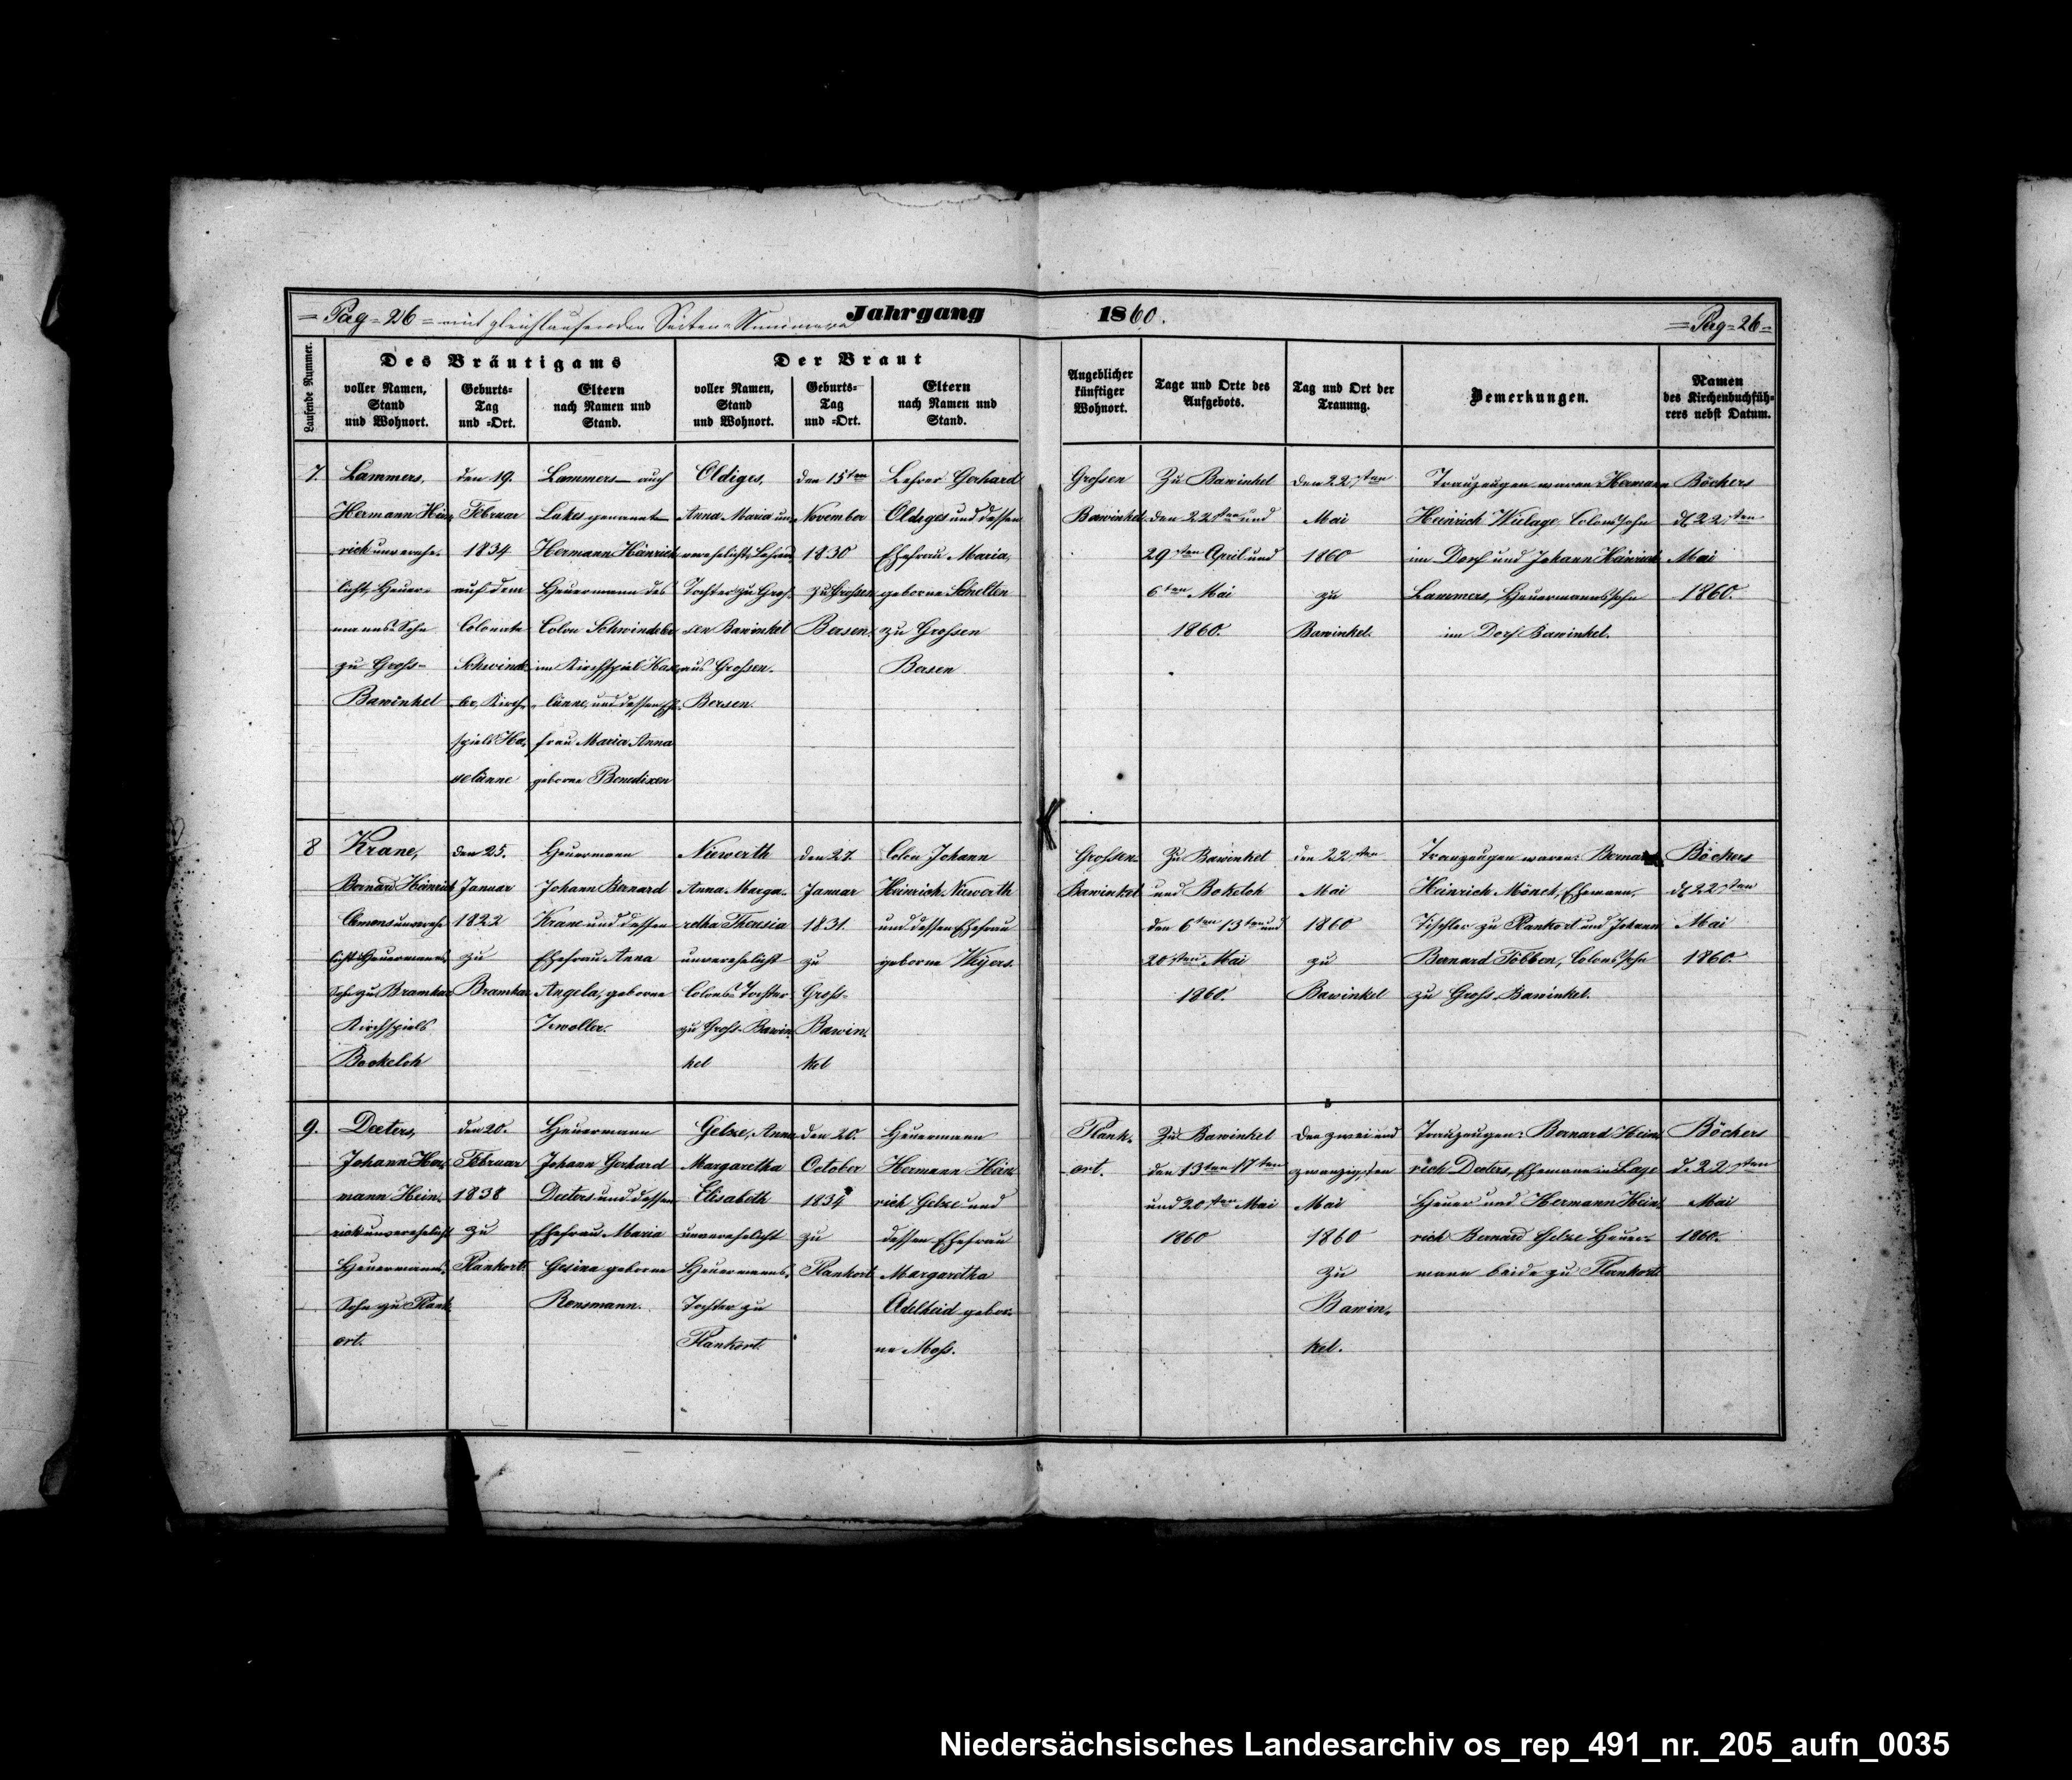 = Pag = 26 = mit gleichlaufenden Seiten = Nummern
Jahrgang
1860.
= Pag = 26 =
Laufende Nummer.
Des Bräutigams
voller Namen,
Stand
und Wohnort.
Geburts=
Tag
und =Ort.
Eltern
nach Namen und
Stand.
Der Braut
voller Namen,
Stand
und Wohnort.
Geburts=
Tag
und =Ort.
Eltern
nach Namen und
Stand.
Angeblicher
künftiger
Wohnort.
Tage und Orte des
Aufgebots.
Tag und Ort der
Trauung.
Bemerkungen.
Namen
des Kirchenbuchfüh=
rers nebst Datum.
7.
Lammers,
Hermann Hein=
rich unverehe=
licht, Heuer=
manns Sohn
zu Groß=
Bawinkel
den 19.
Februar
1834
auf dem
Colonate
Schwinde=
ler, Kirch=
spiels Ha=
selünne
Lammers — auch
Lakes genannt —
Hermann Heinrich
Heuermann des
Colon Schwindeler
im Kirchspiel Hase=
lünne, und dessen Ehe=
frau Maria Anna
geborne Benedixen
Oldiges,
Anna Maria un=
verehelicht, Lehrers
Tochter zu Gros=
sen Bawinkel
aus Grossen=
Bersen.
den 15ten
November
1830
zu Grossen
Bersen.
Lehrer Gerhard
Oldiges und dessen
Ehefrau Maria,
geborne Schelten
zu Grossen
Bersen
Grossen
Bawinkel
Zu Bawinkel
den 22sten und
29sten April und
6ten Mai
1860.
den 22sten
Mai
1860
zu
Bawinkel.
Trauzeugen waren Hermann
Heinrich Wielage, Colons Sohn
im Dorf und Johann Heinrich
Lammers, Heuermannssohn
im Dorf Bawinkel.
Böckers
d 22sten
Mai
1860.
8
Krane,
Bernard Heinrich
Clemens unverehe
licht Heuermanns
Sohn zu Bramhar
Kirchspiels
Bookeloh
den 25.
Januar
1822
zu
Bramhar
Heuermann
Johann Bernard
Krane und dessen
Ehefrau Anna
Angela, geborne
Zwoller.
Niewerth
Anna Marga=
retha Theresia
unverehelicht
Colons Tochter
zu Groß=Bawin
kel
den 27.
Januar
1831.
zu
Groß=
Bawin=
kel
Colon Johann
Heinrich Niewerth
und dessen Ehefrau
geborne Weyers.
Grossen=
Bawinkel
Zu Bawinkel
und Bokeloh
den 6ten 13ten und
20sten Mai
1860.
den 22sten
Mai
1860
zu
Bawinkel
Trauzeugen waren: Bernard
Heinrich Mönch, Ehemann,
Tischler zu Plankort und Johann
Bernard Többen, Colons Sohn
zu Gross Bawinkel.
Böckers
d 22sten
Mai
1860.
9.
Deeters,
Johann Her=
mann Hein=
rich unverehelicht
Heuermanns=
Sohn zu Plank
ort.
den 20.
Februar
1838
zu
Plankort.
Heuermann
Johann Gerhard
Deeters und dessen
Ehefrau Maria
Gesina geborne
Rensmann.
Gelze, Anna
Margaretha
Elisabeth
unverehelicht
Heuermanns=
Tochter zu
Plankort.
den 20.
October
1834
zu
Plankort
Heuermann
Hermann Hein
rich Gelze und
dessen Ehefrau
Margaretha
Adelheid gebor=
ne Moss.
Plank=
ort.
Zu Bawinkel
den 13ten 17ten
und 20sten Mai
1860
den zwei und
zwanzigsten
Mai
1860
zu
Bawin=
kel.
Trauzeugen: Bernard Hein=
rich Deeters, Ehemann in Lage
Heuer und Hermann Hein=
rich Bernard Gelze Heuer=
mann beide zu Plankort.
Böckers
d. 22sten
Mai
1860.
Niedersächsisches Landesarchiv os_rep_491_nr._205_aufn_0035